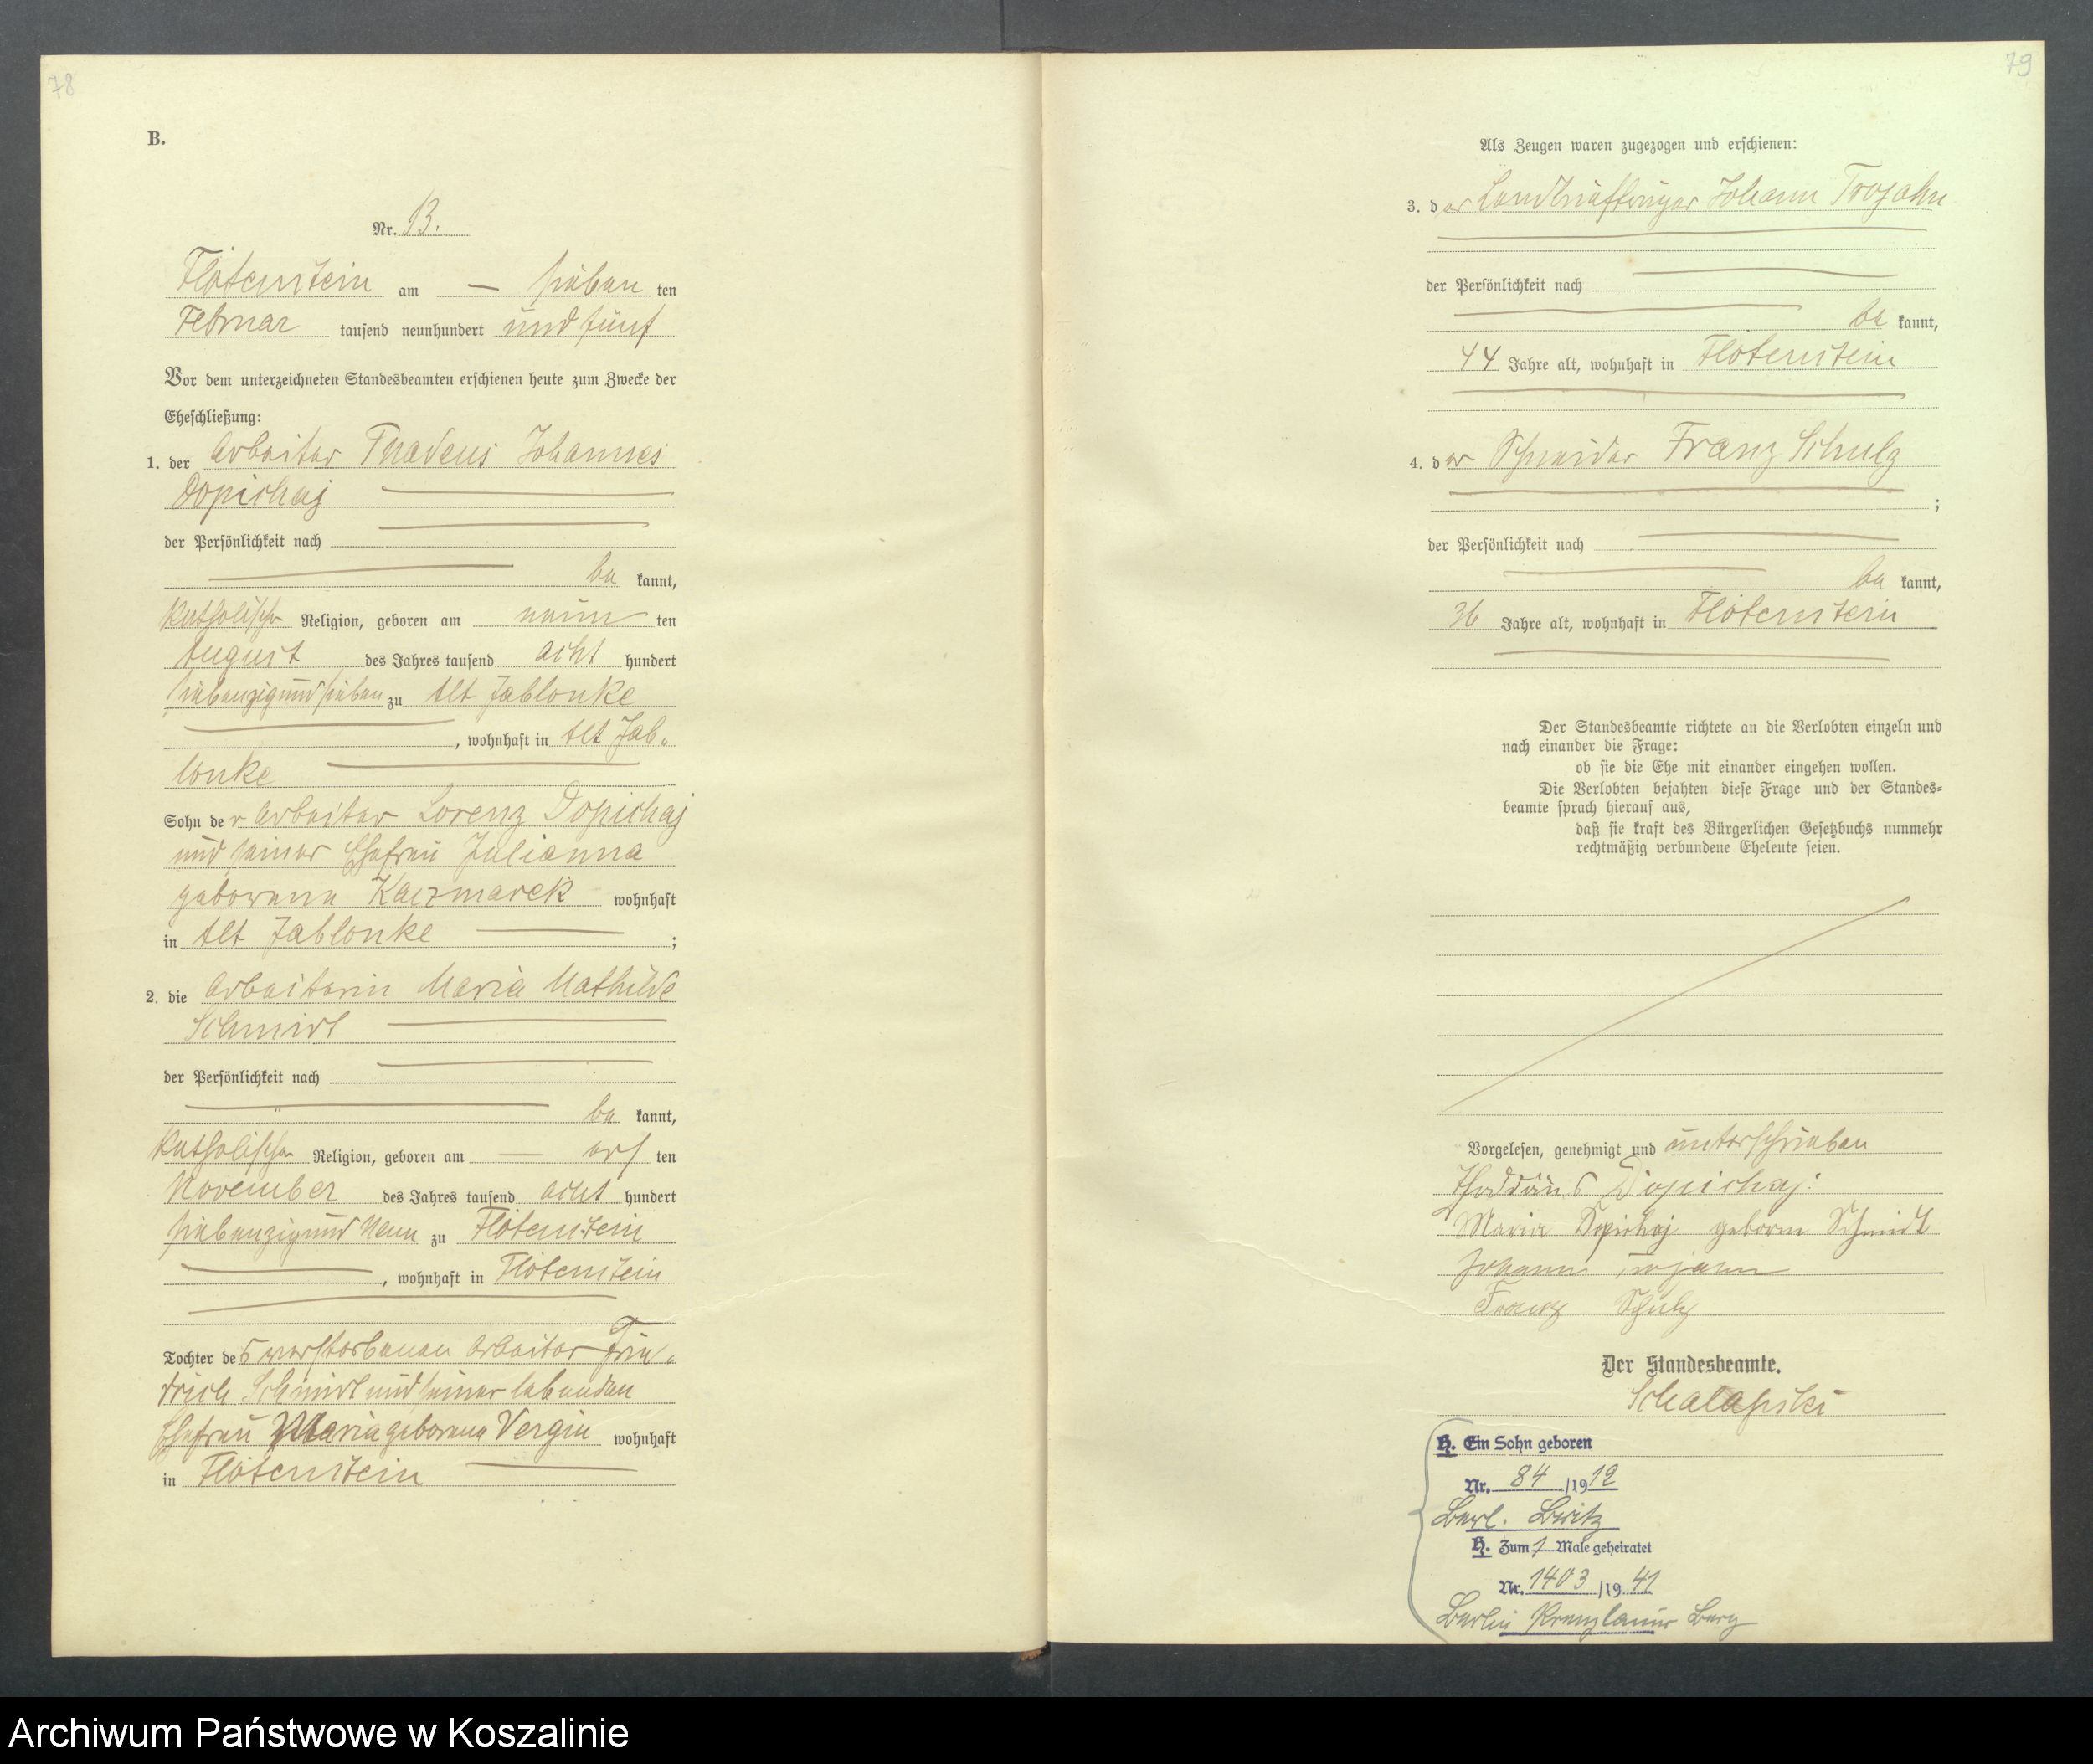 78
B.
Nr. 13.
Flötenstein am — sieben ten
Februar tausend neunhundert und fünf
Vor dem unterzeichneten Standesbeamten erschienen heute zum Zwecke der
Eheschließung:
1. der Arbeiter Thadeus Johannes
Dopichaj
der Persönlichkeit nach
be kannt,
katholischer Religion, geboren am neun ten
August des Jahres tausend acht hundert
siebenzigundsieben zu Alt Jablonke
, wohnhaft in Alt Jab-
lonke
Sohn der Arbeiter Lorenz Dopichaj
und seiner Ehefrau Julianna
geborene Kaczmarek wohnhaft
in Alt Jablonke ;
2. die Arbeiterin Maria Mathilde
Schmidt
der Persönlichkeit nach
be kannt,
katholischer Religion, geboren am — elf ten
November des Jahres tausend acht hundert
siebenzigund neun zu Flötenstein
, wohnhaft in Flötenstein
Tochter des verstorbenen Arbeiter Frie-
drich Schmidt und seiner lebenden
Ehefrau Maria geborene Vergin wohnhaft
in Flötenstein
79
Als Zeugen waren zugezogen und erschienen:
3. der Landbriefträger Johann Trojahn
der Persönlichkeit nach
be kannt,
44 Jahre alt, wohnhaft in Flötenstein
4. der Schneider Franz Schulz
;
der Persönlichkeit nach
be kannt,
36 Jahre alt, wohnhaft in Flötenstein
Der Standesbeamte richtete an die Verlobten einzeln und
nach einander die Frage:
ob sie die Ehe mit einander eingehen wollen.
Die Verlobten bejahten diese Frage und der Standes-
beamte sprach hierauf aus,
daß sie kraft des Bürgerlichen Gesetzbuchs nunmehr
rechtmäßig verbundene Eheleute seien.
Vorgelesen, genehmigt und unterschrieben
Dopichaj.
Maria Dopichaj geboren Schmidt
Johann Trojann
Franz Schulz
Der Standesbeamte.
H. Ein Sohn geboren
Nr. 84 /1912
Berl. Britz
H. Zum 1 Male geheiratet
Nr. 1403 /1941
Berlin Prenzlauer Berg
Archiwum Państwowe w Koszalinie